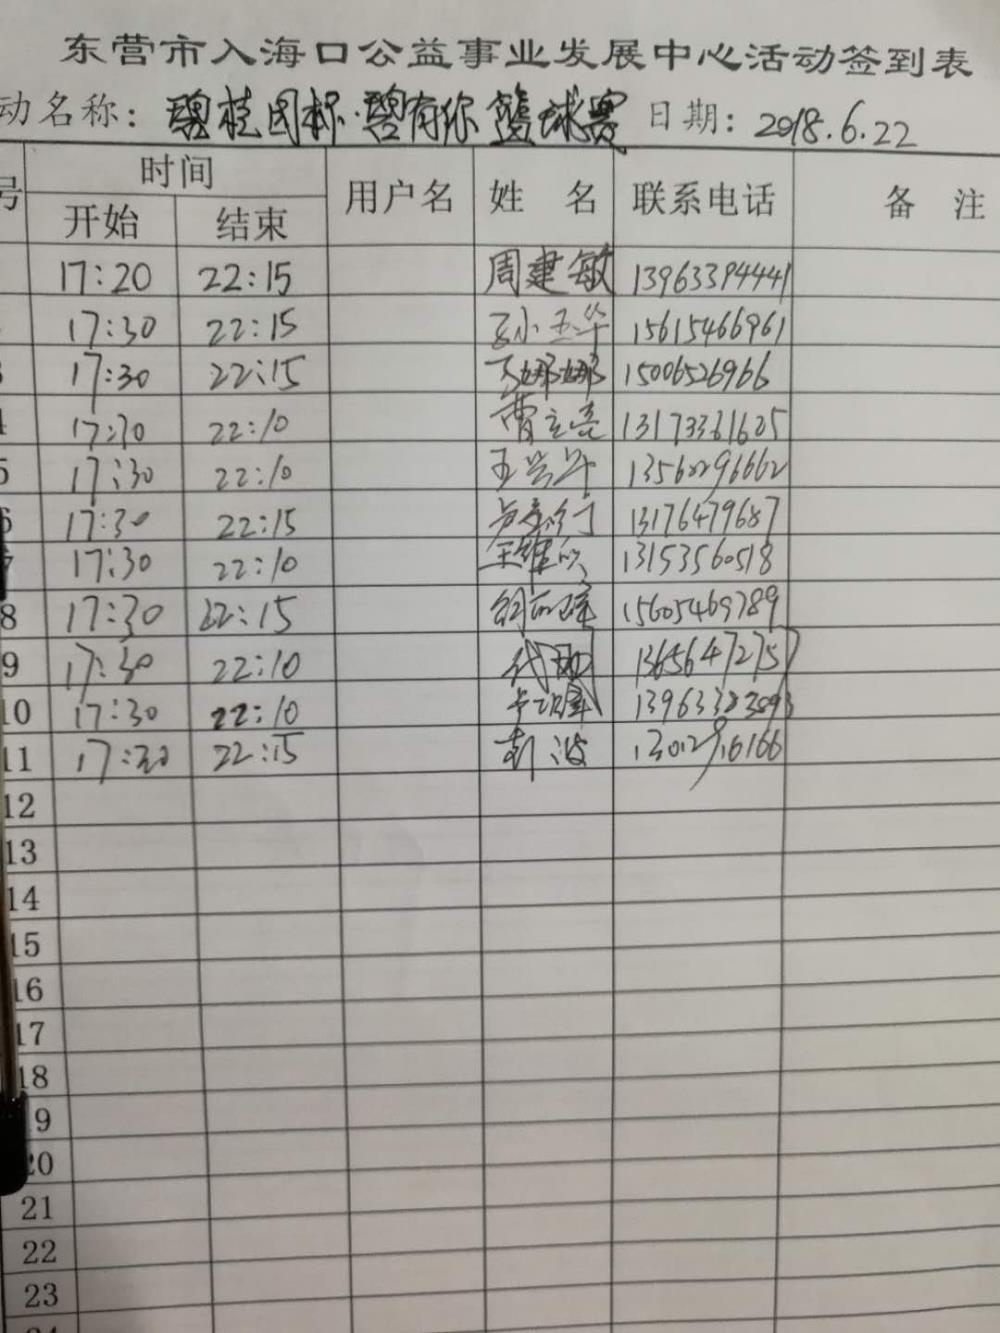 东营市入海口公益事业发展中心活动签到表
动名称：碧桂园杯·碧有你篮球赛 日期：2018.6.22
号 时间 用户名 姓 名 联系电话 备 注
开始 结束
17:20 22:15 周建敏 13963394441
17:30 22:15 15615466961
17:30 22:15 娜娜 15006526966
17:30 22:10 曹立亮 13173361605
5 17:30 22:10 王兴华 13562296662
6 17:30 22:15 13176479687
17:30 22:10 13153560518
8 17:30 22:15 15605469789
9 17:30 22:10 13656472757
10 17:30 22:10
11 17:30 22:15 彭波
12
13
14
15
16
17
18
19
20
21
22
23